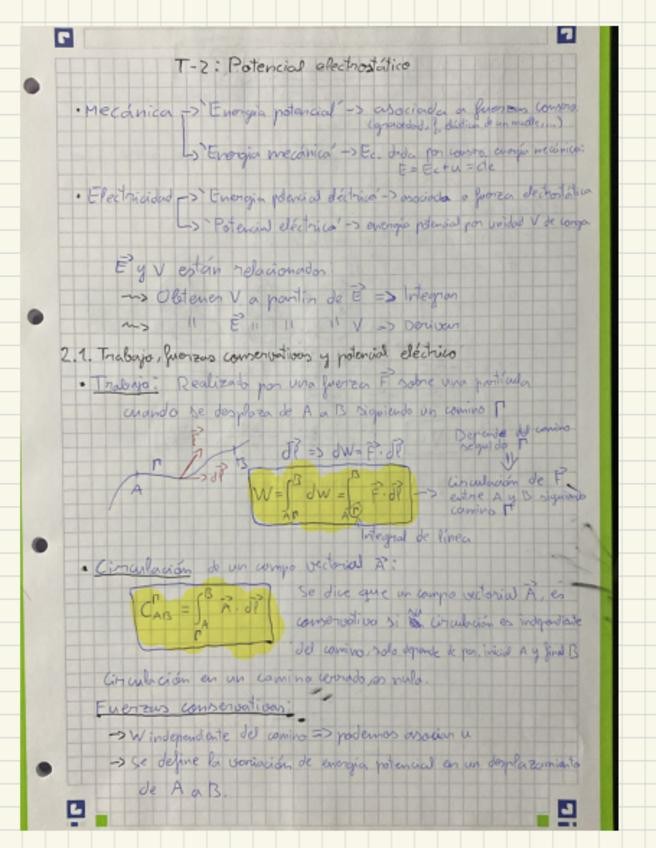 T-2: Potencial electrostático
• Mecánica -> "Energía potencial" -> asociada a fuerzas conserv.
(gravedad, f. elástica de un muelle,...)
-> "Energía mecánica" -> Ec. dada por conserv. energía mecánica:
E = Ec + u = cte
• Electricidad -> "Energía potencial eléctrica" -> asociada a fuerza electrostática
-> "Potencial eléctrico" -> energía potencial por unidad V de carga
E⃗ y V están relacionados
~> Obtener V a partir de E⃗ => Integrar
~> " E⃗ " " " V => Derivar
2.1. Trabajo, fuerzas conservativas y potencial eléctrico
• Trabajo: Realizado por una fuerza F⃗ sobre una partícula
cuando se desplaza de A a B siguiendo un camino Γ
Γ A F⃗ dl⃗ B
dl⃗ => dW = F⃗ · dl⃗
W = ∫_{AΓ}^{B} dW = ∫_{AΓ}^{B} F⃗ · dl⃗ ->
Integral de línea
Depende del camino
seguido Γ
⇓
Circulación de F⃗
entre A y B siguiendo
camino Γ
• Circulación de un campo vectorial A⃗:
C_{AB}^{Γ} = ∫_{A Γ}^{B} A⃗ · dl⃗
Se dice que un campo vectorial A⃗, es
conservativo si circulación es independiente
del camino, solo depende de pos. inicial A y final B
Circulación en un camino cerrado, es nula.
Fuerzas conservativas:
-> W independiente del camino => podemos asociar u
-> Se define la variación de energía potencial en un desplazamiento
de A a B.